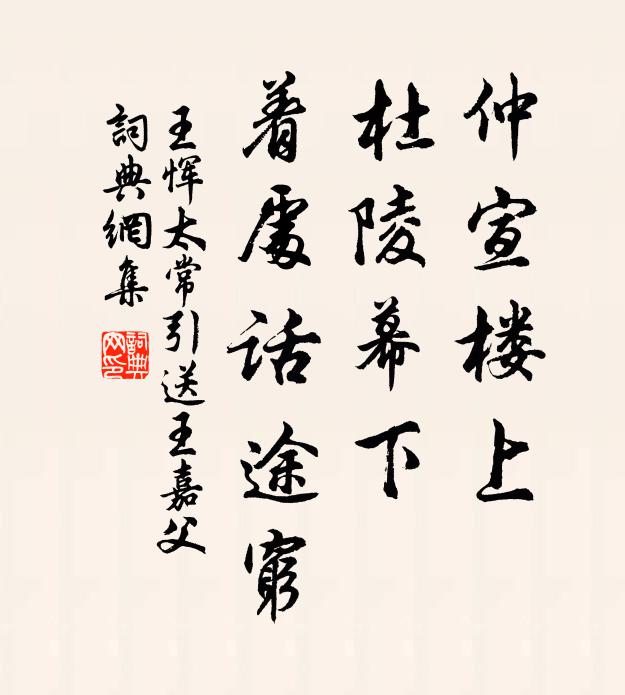 仲宣楼上
杜陵幕下
着處话途窮
王恽太常引送王嘉父
詞典網集
詞典网印